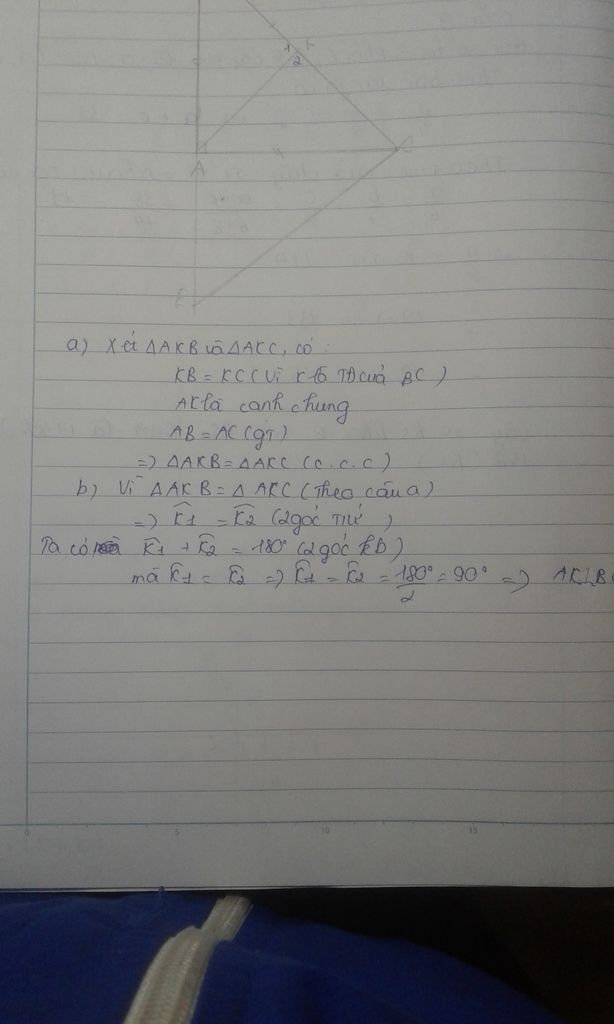 1 1
2
A
C
B
a) Xét ΔAKB và ΔAKC, có:
KB = KC (Vì K là TĐ của BC)
AK là cạnh chung
AB = AC (gt)
=> ΔAKB = ΔAKC (c.c.c)
b) Vì ΔAKB = ΔAKC (Theo câu a)
=> K̂1 = K̂2 (2 góc TƯ)
Ta có K̂1 + K̂2 = 180° (2 góc KB)
mà K̂1 = K̂2 => K̂1 = K̂2 = 180°/2 = 90° => AK⊥B
0 5 10 15